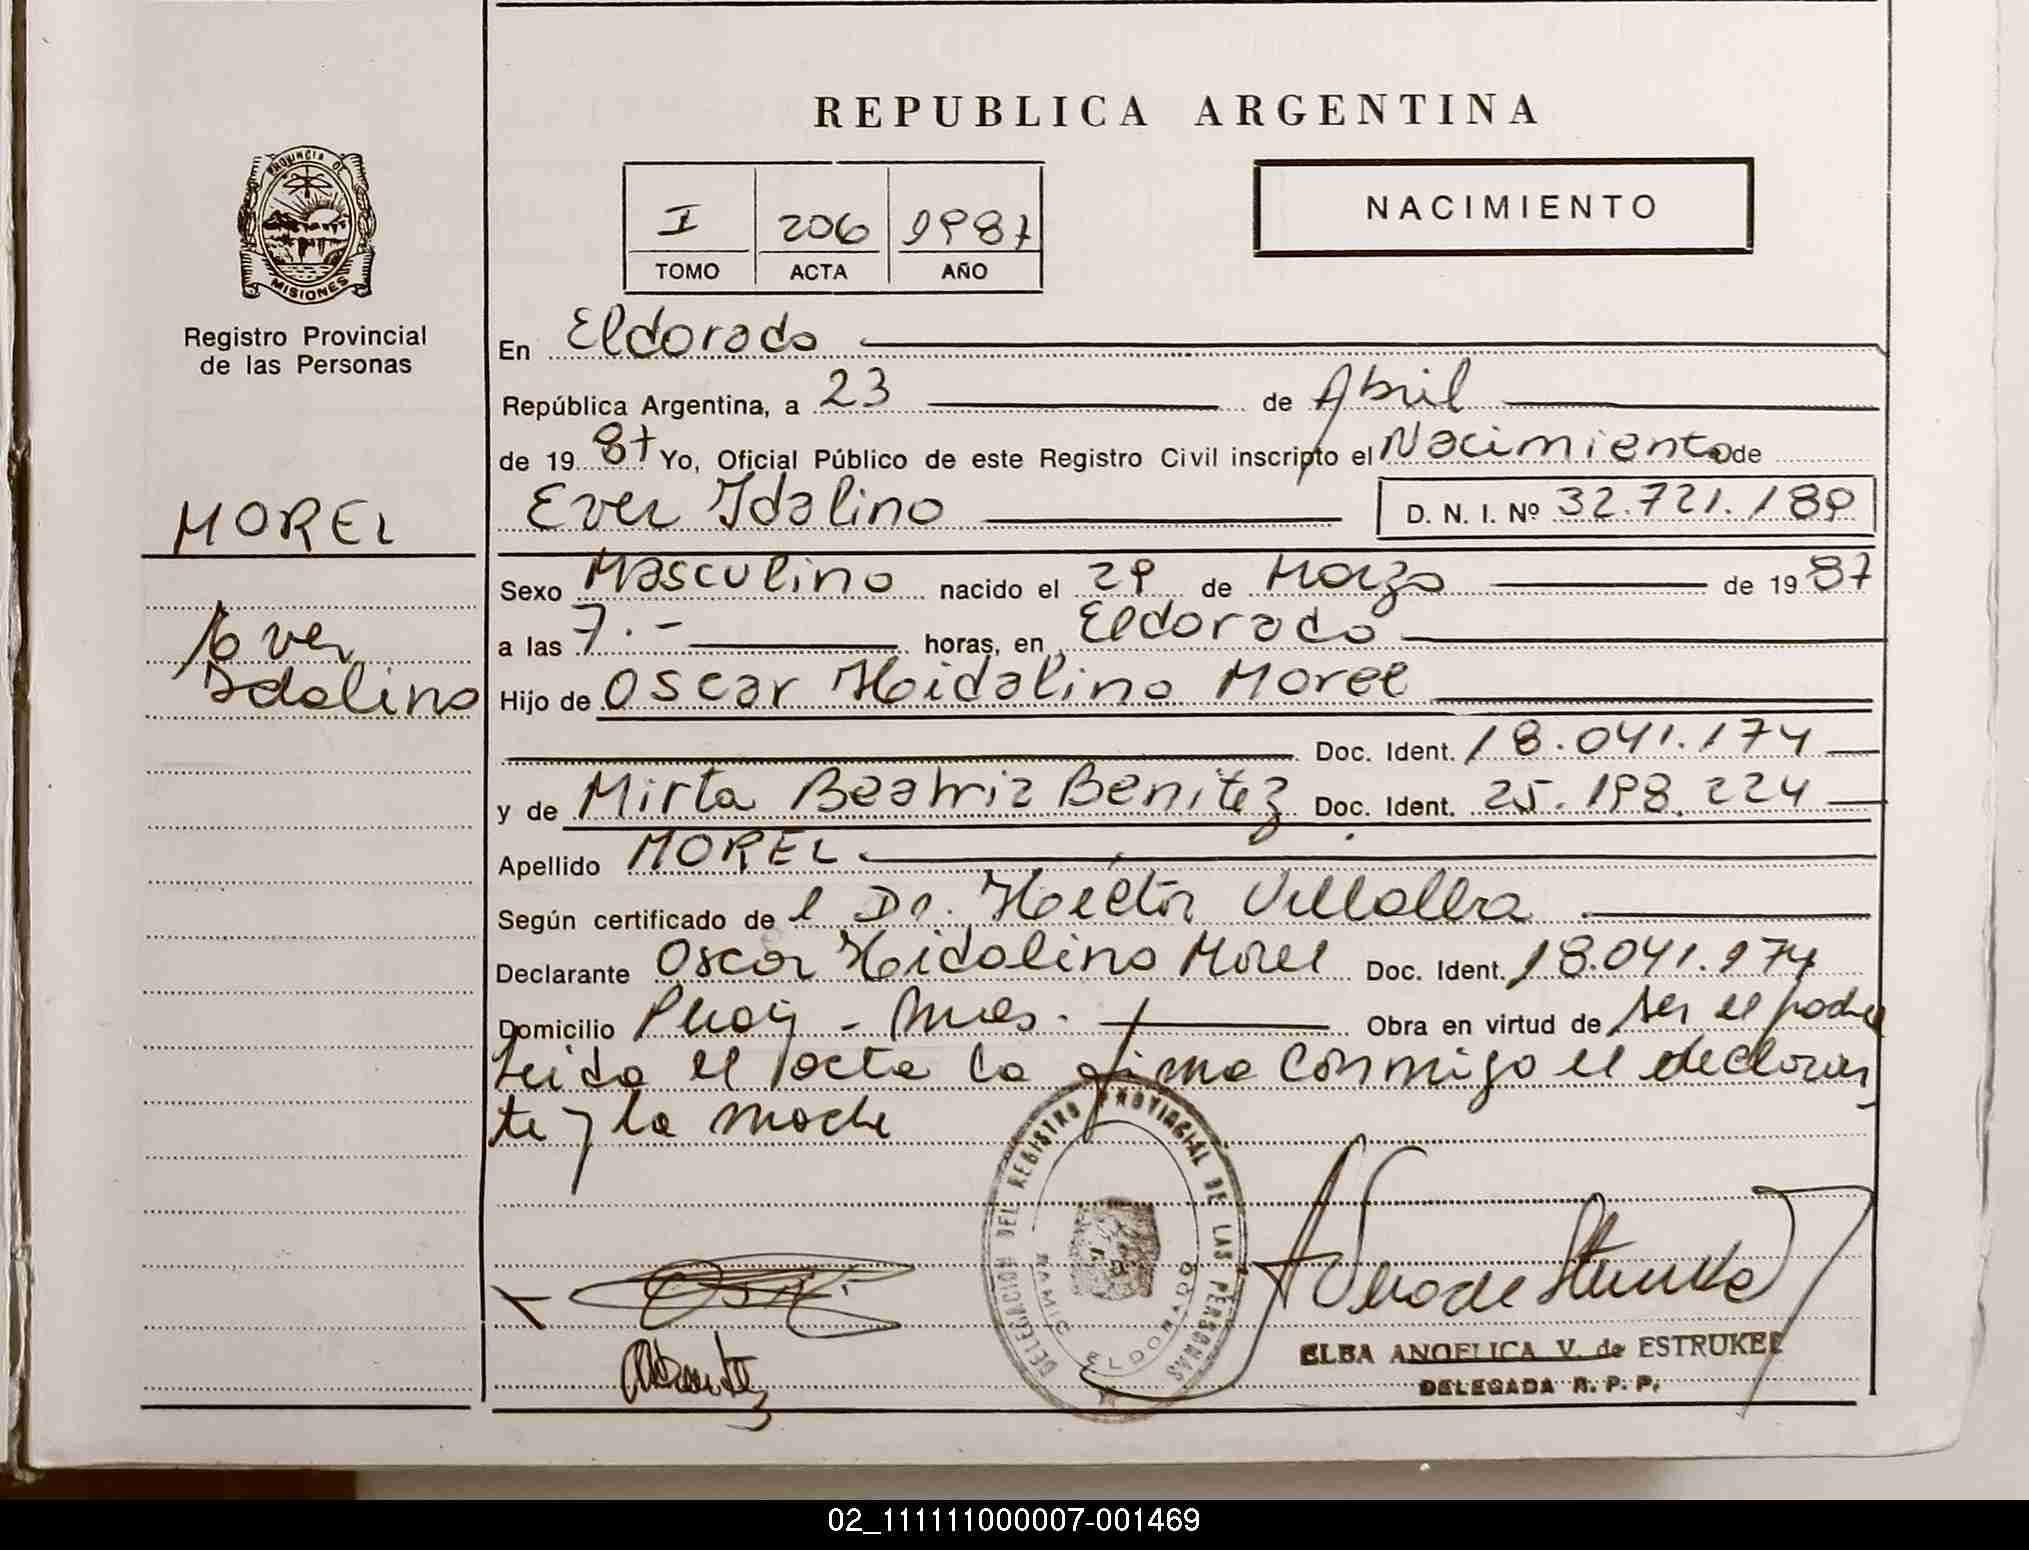 REPUBLICA ARGENTINA
PROVINCIA DE
MISIONES
Registro Provincial
de las Personas
I 206 1987
TOMO ACTA AÑO
NACIMIENTO
En Eldorado
República Argentina, a 23 de Abril
de 19 87 Yo, Oficial Público de este Registro Civil inscripto el Nacimiento de
MOREL
Ever Idalino D. N. I. Nº 32.721.189
Sexo Masculino nacido el 29 de Marzo de 19 87
Ever
Idalino
a las 7.- horas, en Eldorado
Hijo de Oscar Hidalino Morel
Doc. Ident. 18.041.174
y de Mirta Beatriz Benitez Doc. Ident. 25.198.224
Apellido MOREL
Según certificado de l Dr. Héctor Villalba
Declarante Oscar Hidalino Morel Doc. Ident. 18.041.174
Domicilio Mnes. Obra en virtud de ser el padre
Leida el acta la firma conmigo el declaran
te y la madre
DELEGACION DEL REGISTRO PROVINCIAL DE LAS PERSONAS
ELDORADO
ELBA ANGELICA V. de ESTRUKEL
DELEGADA R. P. P.
02_111111000007-001469